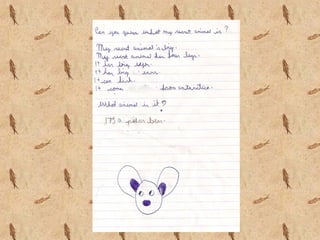 Can you guess what my secret animal is?
My secret animal is big.
My secret animal has four legs.
It has big
It has big ears.
It can
It comes from antarctica.
What animal is it?
IT'S a polar bear.